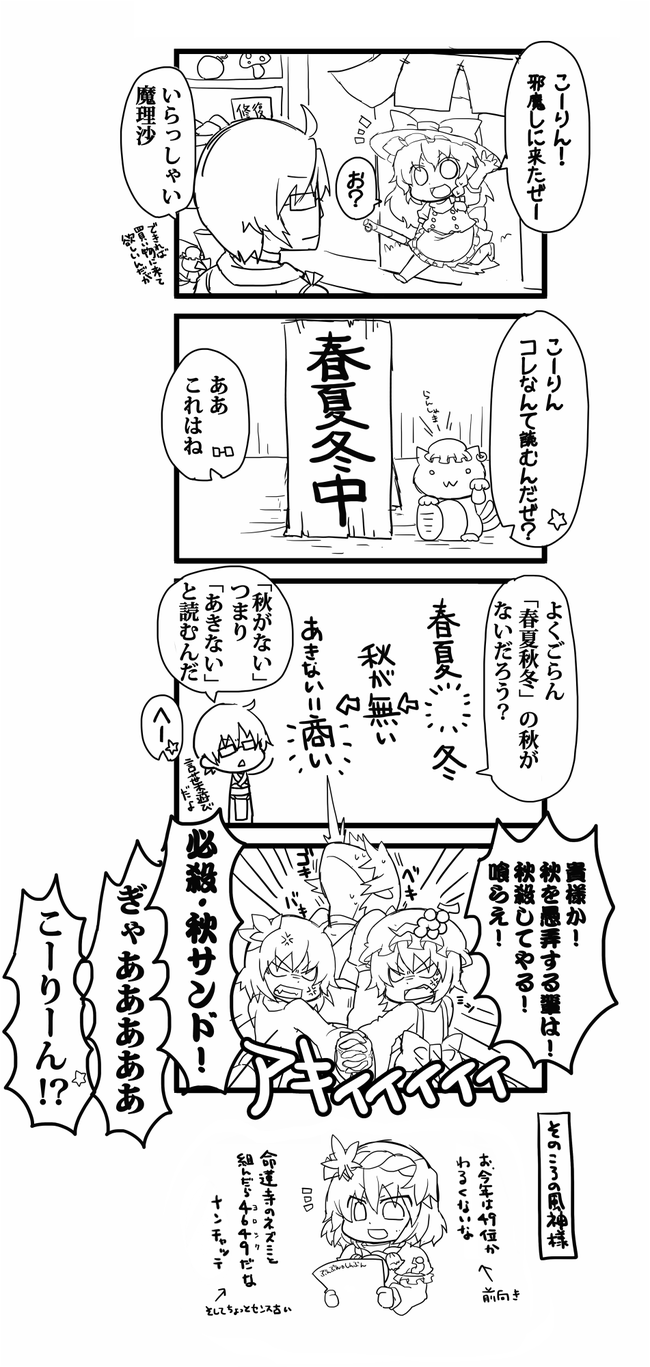 こーりん!
邪魔しに来たぜー
お?
いらっしゃい
魔理沙
できれば
買い物に来て
欲しいんだが
こーりん
コレなんて読むんだぜ?
春夏冬中
ああ
これはね
よくごらん
「春夏秋冬」の秋が
ないだろう?
春夏 冬
秋が無い
あきない=商い
「秋がない」
つまり
「あきない」
と読むんだ
へー
言葉遊び
だよ
貴様か!
秋を愚弄する輩は!
秋殺してやる!
喰らえ!
ベキ
ゴキ
バキ
必殺・秋サンド!
アキィィィィィィ
ぎゃああああああ
こーりーん!?
そのころの風神様
お、今年は49位か
わるくないな
前向き
命蓮寺のネズミと
組んだら4649だな
ヨロシク
ナンチャッテ
そしてちょっとセンス古い
ぶんぶんしんぶん